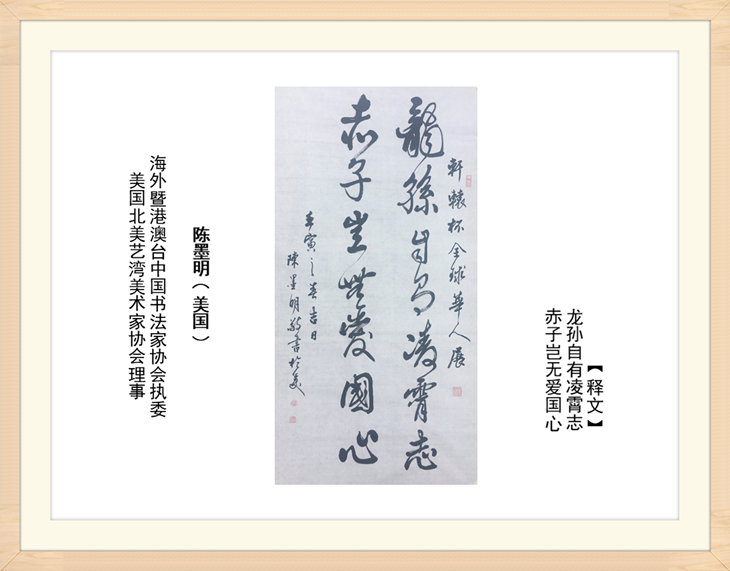 【释文】
龙孙自有凌霄志
赤子岂无爱国心
軒轅杯全球華人展
龍孫自有凌霄志
赤子豈無愛國心
壬寅之春吉日
陳墨明敬書於美
陈墨明（美国）
海外暨港澳台中国书法家协会执委
美国北美艺湾美术家协会理事